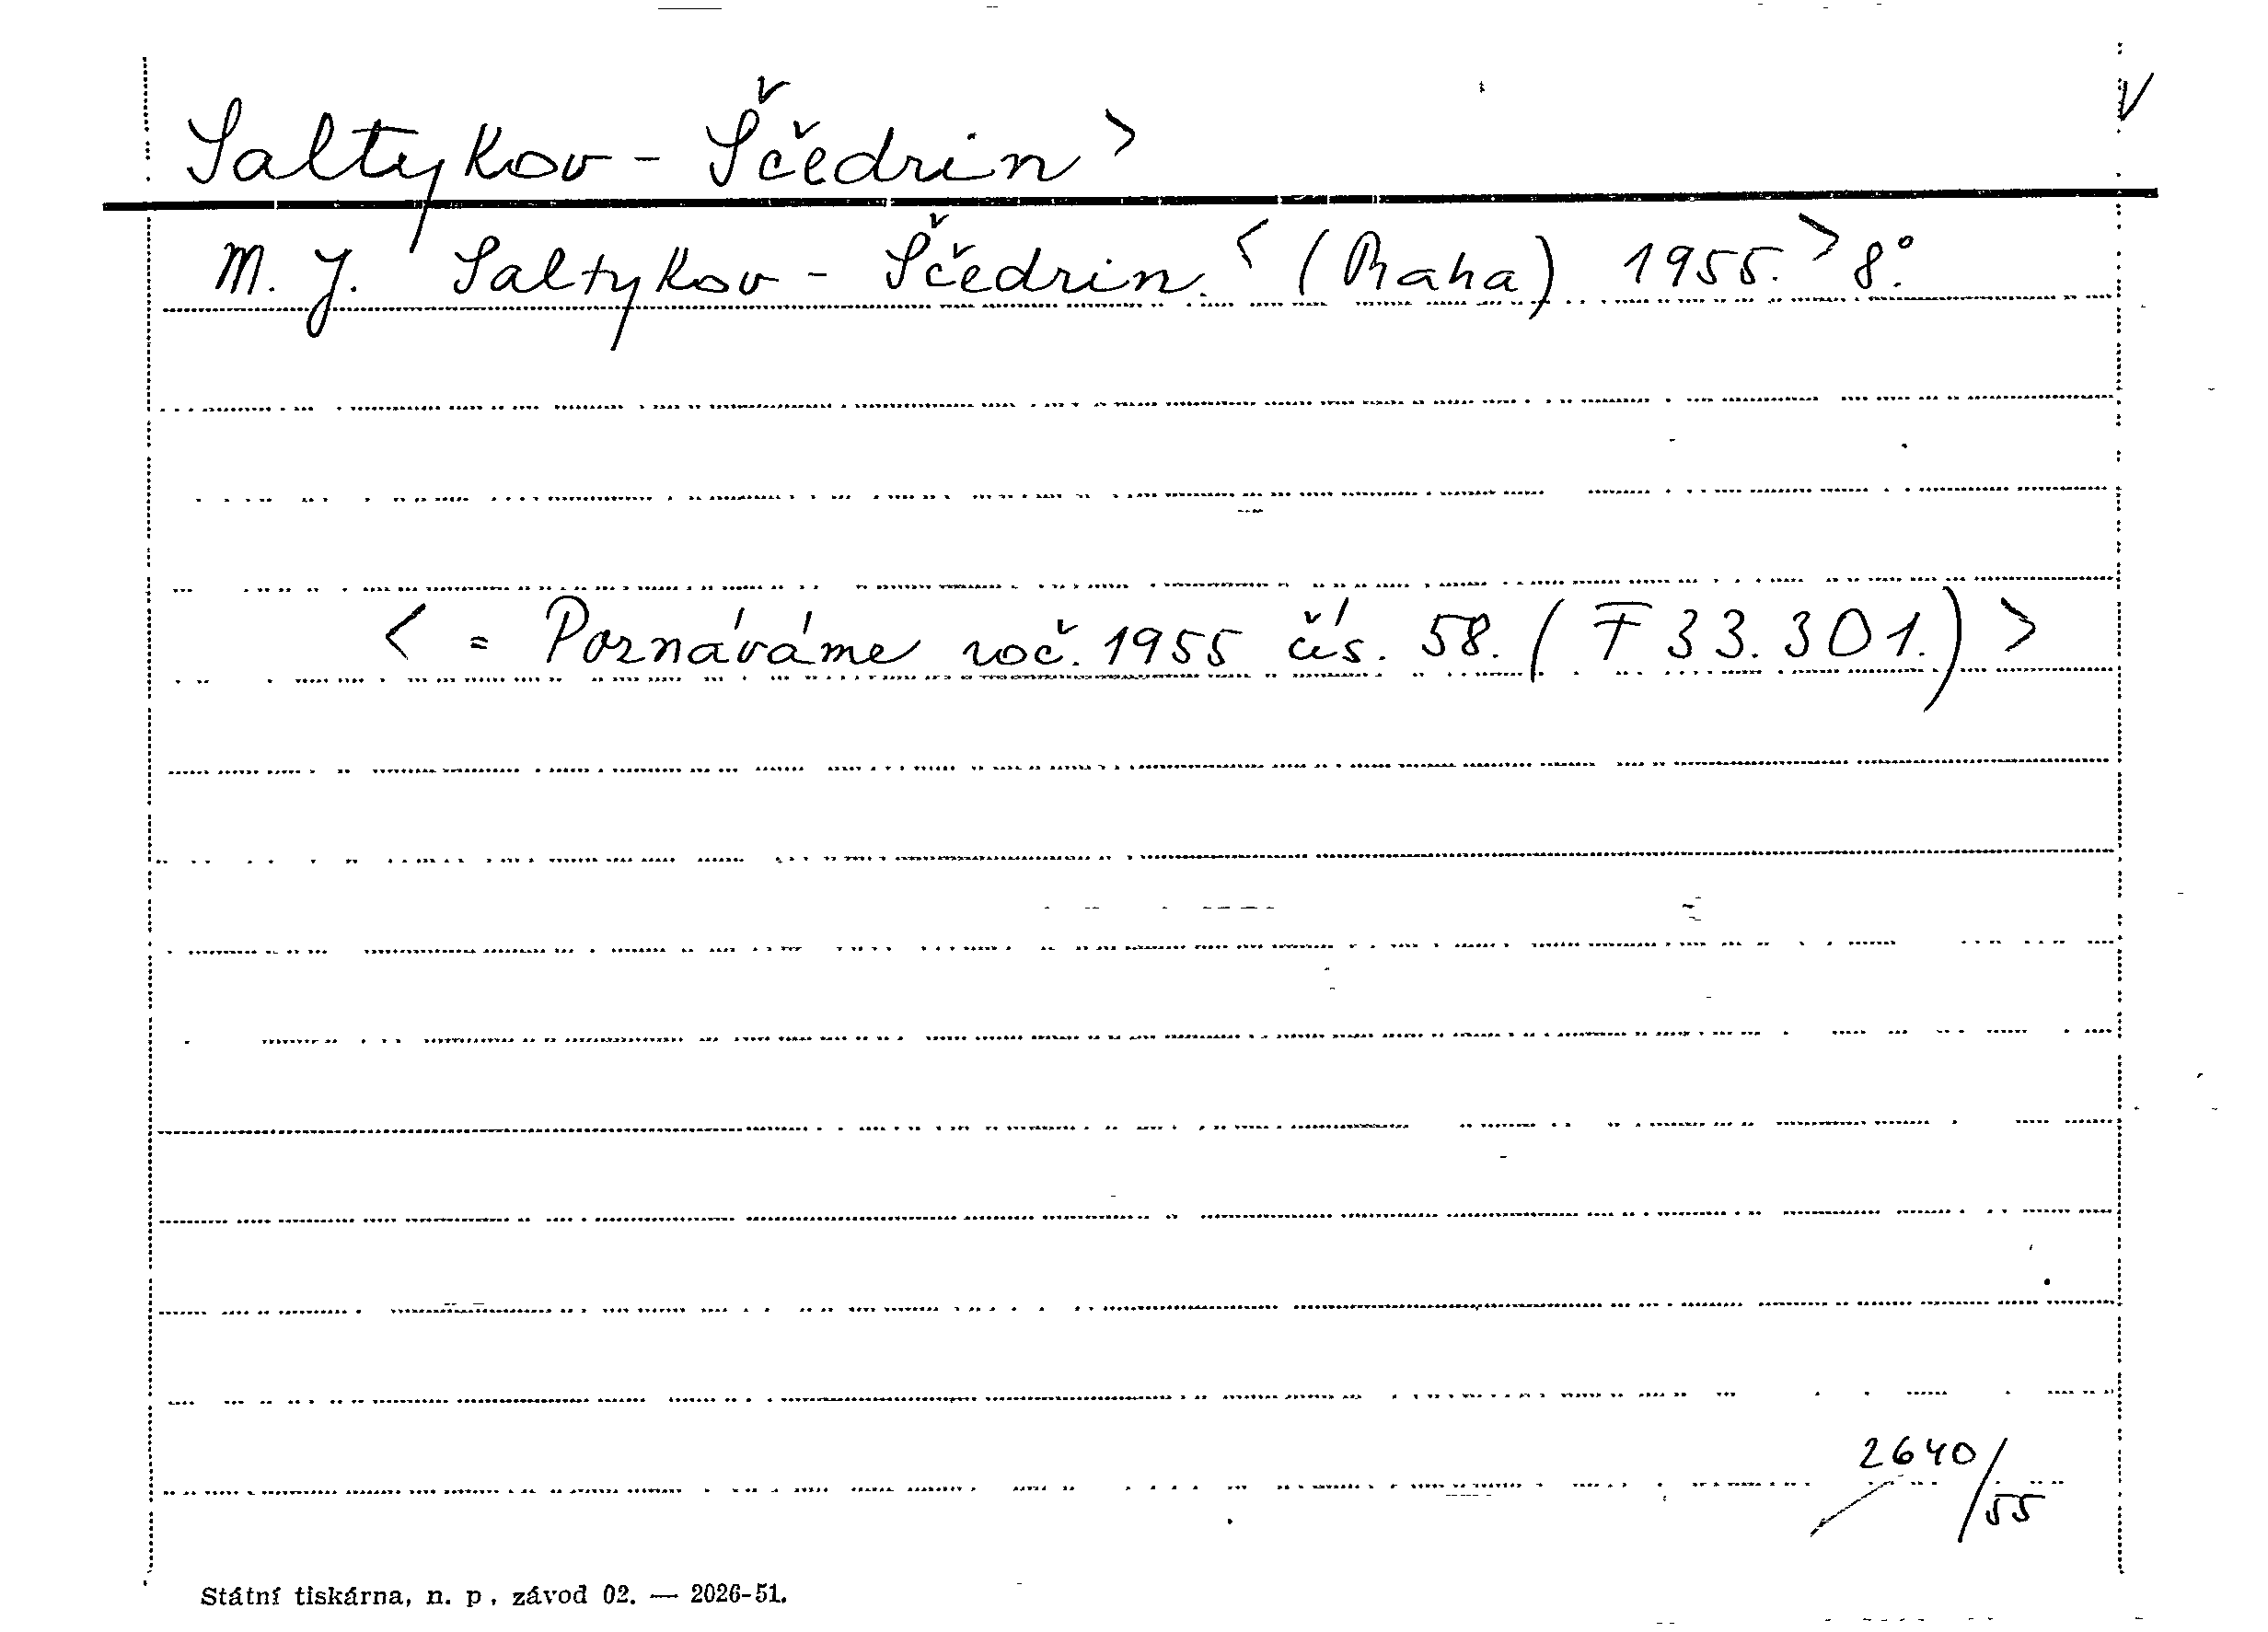 Saltykov - Ščedrin > V
M. J. Saltykov - Ščedrin. < (Praha) 1955. > 8°.
< = Poznáváme roč. 1955 čís. 58. (F 33.301.) >
2640/55
Státní tiskárna, n. p., závod 02. — 2026-51.